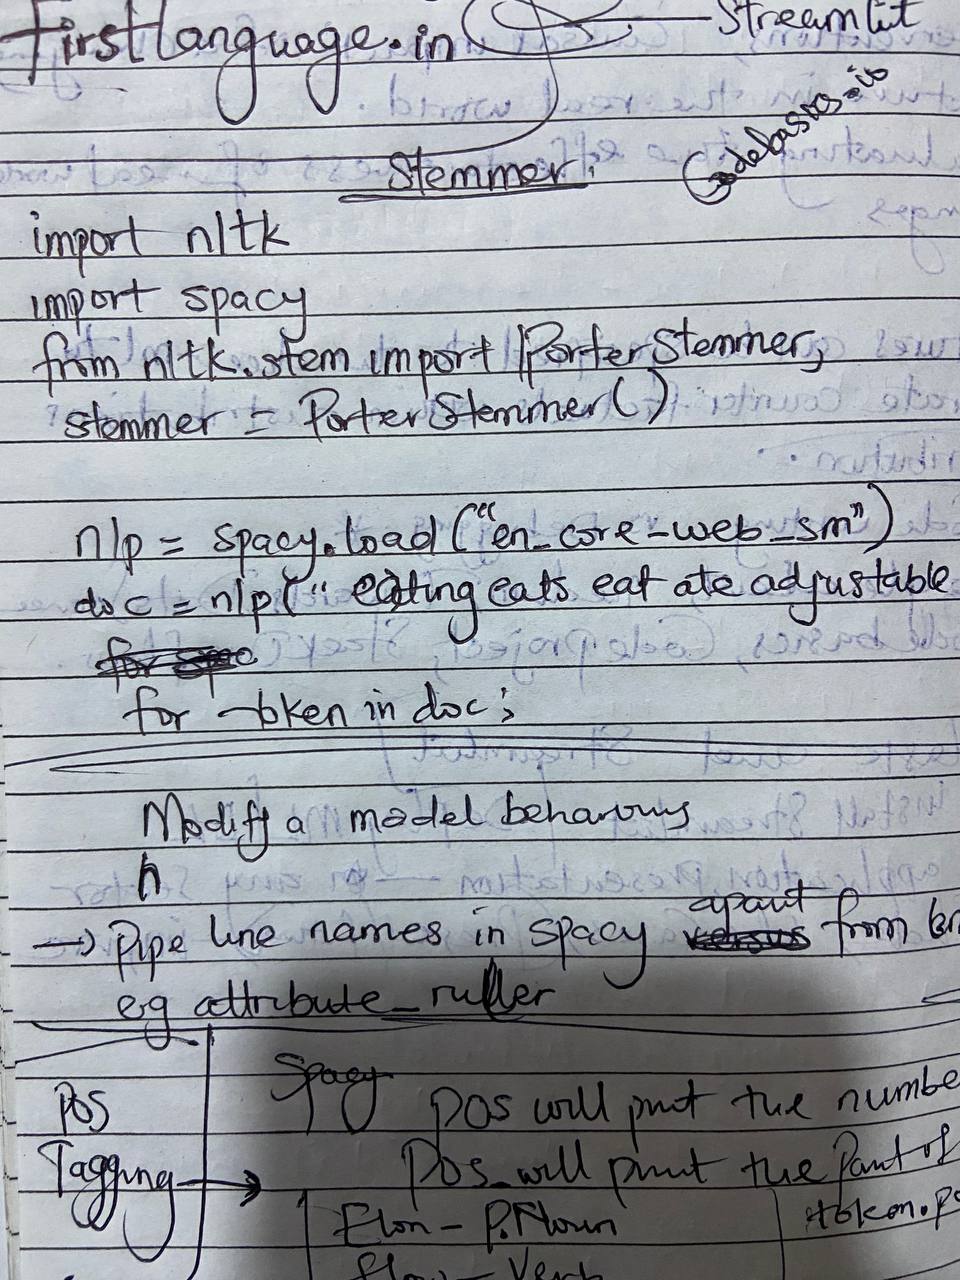 Firstlanguage.in
Streamlit
Codebasics.io
Stemmer.
import nltk
import spacy
from nltk.stem import PorterStemmer,
stemmer = PorterStemmer()
nlp = spacy.load("en_core-web_sm")
doc = nlp(" eating eats eat ate adjustable
for token in doc:
Modify a model behaviours
h
→ Pipe line names in spacy apart from
eg attribute_ruller
POS
Tagging →
Spacy
POS will print the number
Pos_will print the Part of
Elon - P.Noun
token.po
Verb